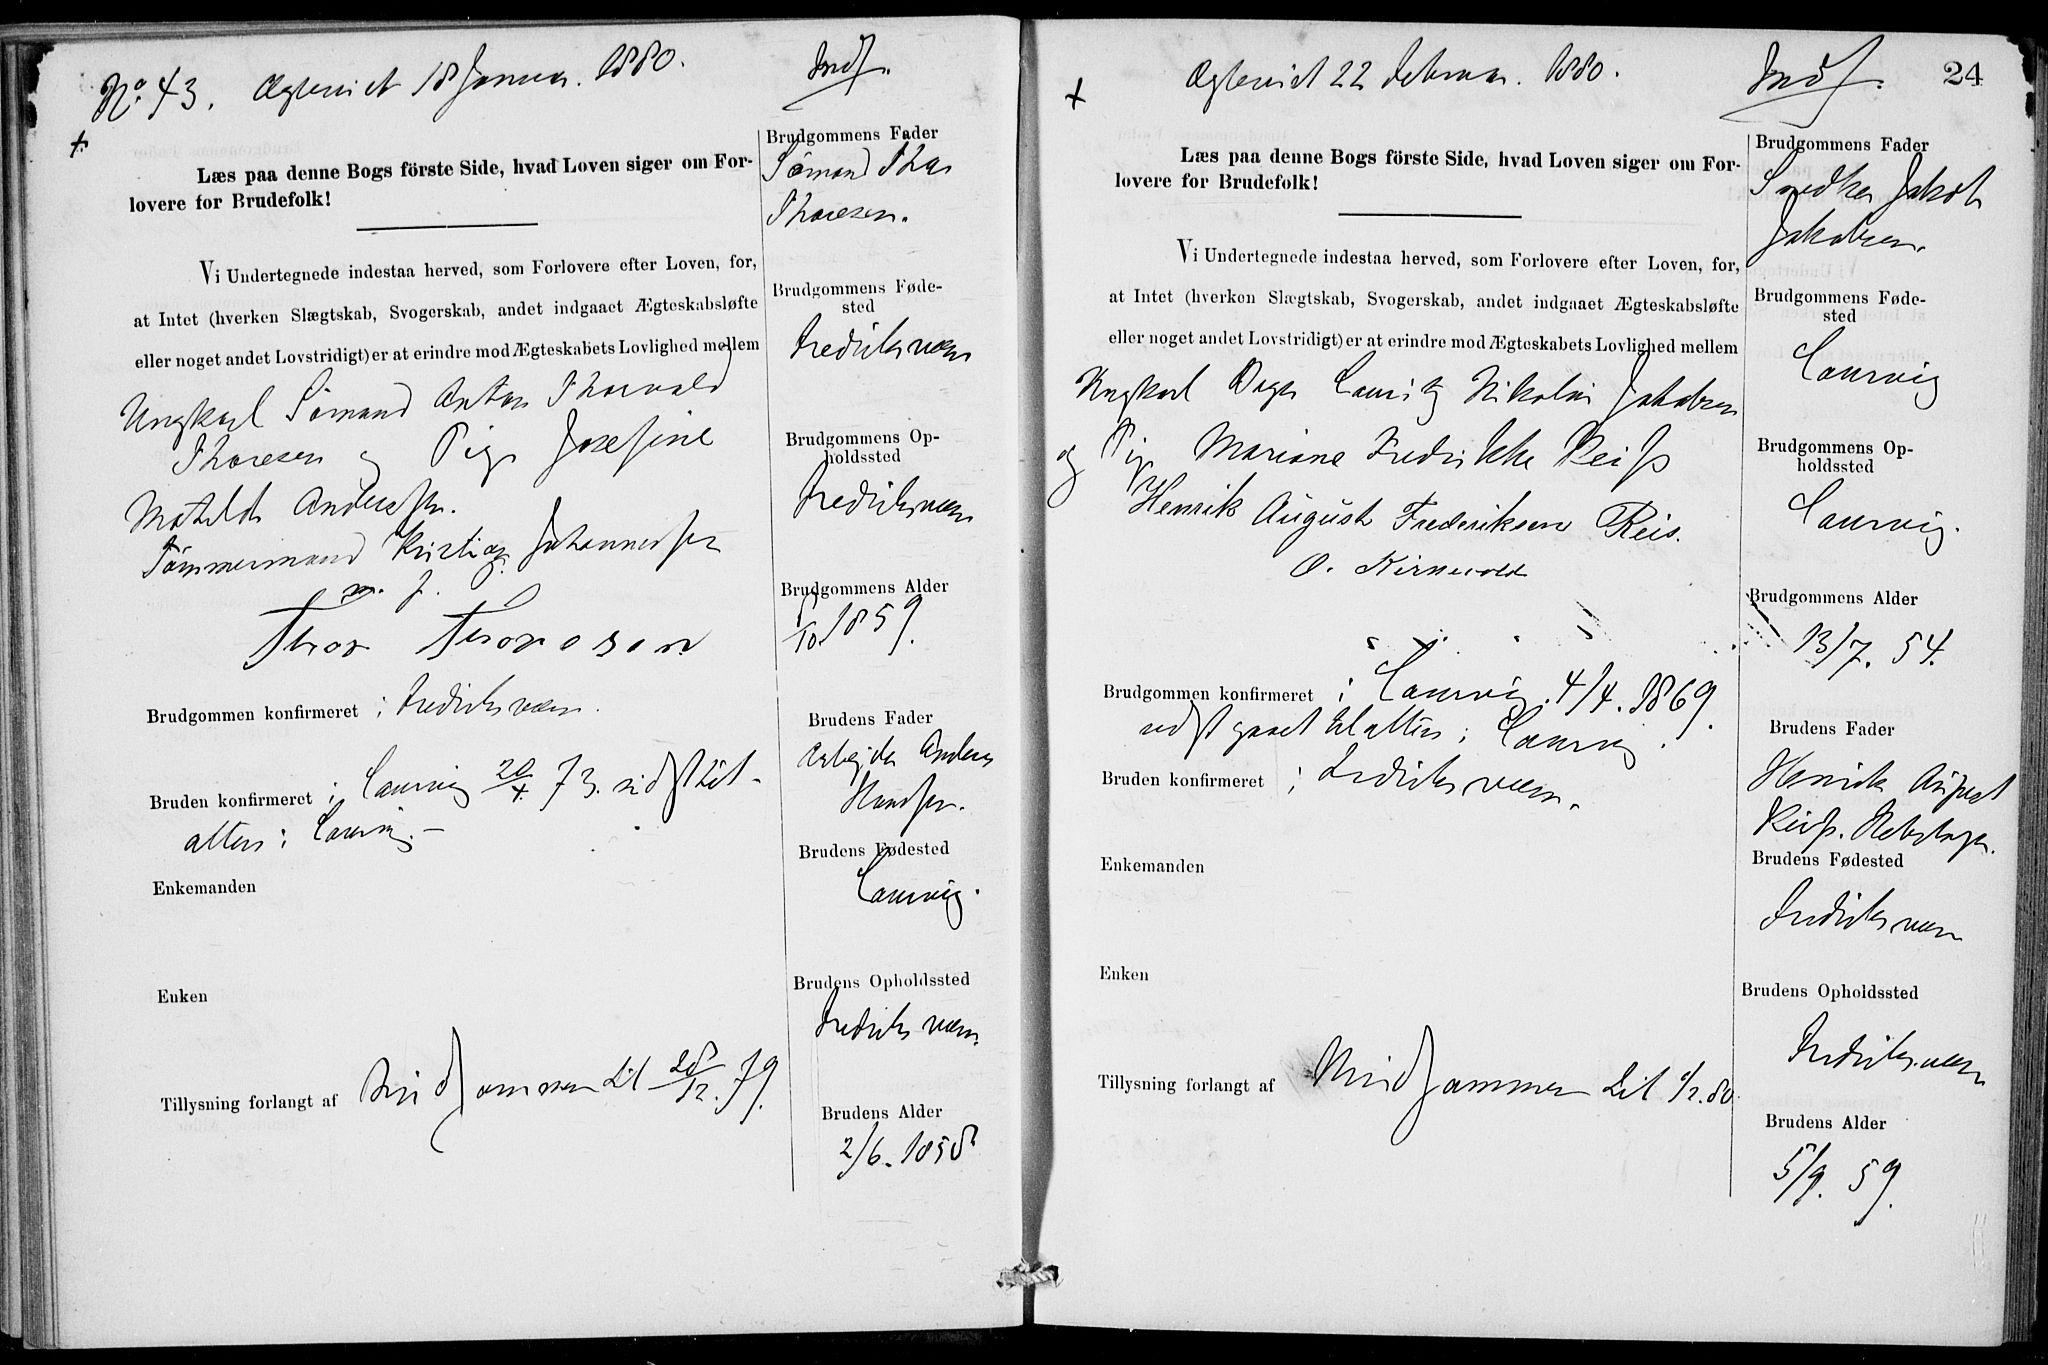 No. 43. Ægteviet 18 Januar. 1880. Indf.
+
Læs paa denne Bogs förste Side, hvad Loven siger om For-
lovere for Brudefolk!
Vi Undertegnede indestaa herved, som Forlovere efter Loven, for,
at Intet (hverken Slægtskab, Svogerskab, andet indgaaet Ægteskabsløfte
eller noget andet Lovstridigt) er at erindre mod Ægteskabets Lovlighed mellem
Ungkarl Sømand Anton Thorvald
Thoresen og Pige Josefine
Matilde Anderssen.
Tömmermand Kristian Johannessen
m. f.
Thor Thoresen
Brudgommen konfirmeret i Fredriksværn.
Bruden konfirmeret i Laurvig 20/4. 73. sidst til-
alters i Laurvig. –
Enkemanden
Enken
Tillysning forlangt af Brudgommen til 28/12. 79.
Brudgommens Fader
Sømand Thor
Thoresen.
Brudgommens Føde-
sted
Fredriksværn
Brudgommens Op-
holdssted
Fredriksværn
Brudgommens Alder
/10. 1859.
Brudens Fader
Arbeider Anders
Hansen.
Brudens Fødested
Laurvig.
Brudens Opholdssted
Fredriksværn.
Brudens Alder
2/6. 1858
+ Ægteviet 22 Februar. 1880. Indf. 24
Læs paa denne Bogs förste Side, hvad Loven siger om For-
lovere for Brudefolk!
Vi Undertegnede indestaa herved, som Forlovere efter Loven, for,
at Intet (hverken Slægtskab, Svogerskab, andet indgaaet Ægteskabsløfte
eller noget andet Lovstridigt) er at erindre mod Ægteskabets Lovlighed mellem
Ungkarl Lauritz Nikolai Jakobsen
og Pige Mariane Fredrikke Reiss
Henrik August Frederiksen Reis.
O. Kirnevold
Brudgommen konfirmeret i Laurvig. 4/4. 1869.
sidst gaaet til alters i Laurvig.
Bruden konfirmeret i Fredriksværn.
Enkemanden
Enken
Tillysning forlangt af Brudgommen til 1/2. 80.
Brudgommens Fader
Snedker Jakob
Jakobsen.
Brudgommens Føde-
sted
Laurvig
Brudgommens Op-
holdssted
Laurvig.
Brudgommens Alder
13/7. 54.
Brudens Fader
Henrik August
Reiss.
Brudens Fødested
Fredriksværn
Brudens Opholdssted
Fredriksværn
Brudens Alder
5/9. 59.